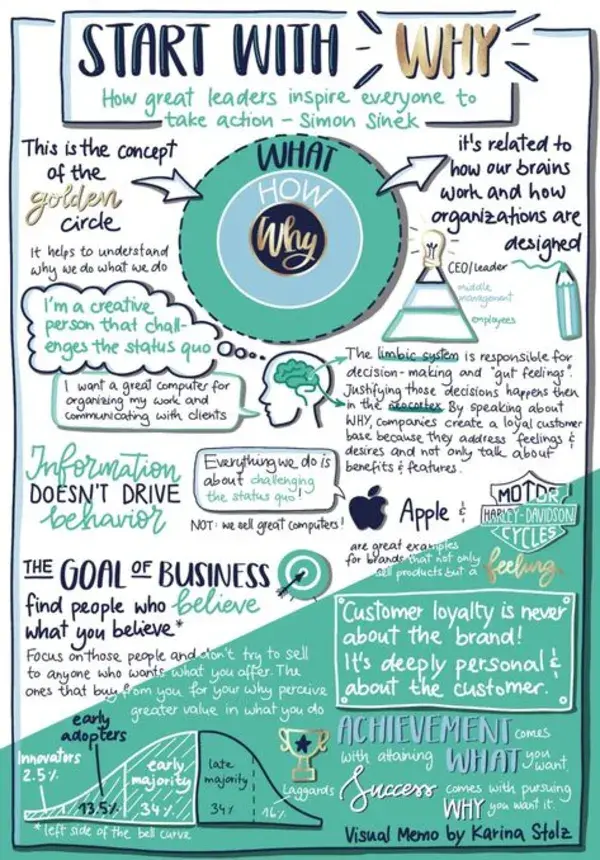 START WITH WHY
How great leaders inspire everyone to
take action – Simon Sinek
This is the concept
of the
golden
circle
It helps to understand
why we do what we do
WHAT
HOW
Why
it's related to
how our brains
work and how
organizations are
designed
CEO/leader
middle
management
employees
I'm a creative
person that chall-
enges the status quo
I want a great computer for
organizing my work and
communicating with clients
The limbic system is responsible for
decision-making and "gut feelings".
Justifying those decisions happens then
in the neocortex. By speaking about
WHY, companies create a loyal customer
base because they address feelings &
desires and not only talk about
benefits & features.
Information
DOESN'T DRIVE
behavior
Everything we do is
about challenging
the status quo!
NOT: we sell great computers!
Apple &
MOTOR
HARLEY-DAVIDSON
CYCLES
are great examples
for brands that not only
sell products but a feeling.
THE GOAL OF BUSINESS
find people who believe
what you believe*
Focus on those people and don't try to sell
to anyone who wants what you offer. The
ones that buy from you for your why perceive
greater value in what you do
Customer loyalty is never
about the brand!
It's deeply personal &
about the customer.
Innovators
2.5%
early
adopters
13.5%
early
majority
34%
late
majority
34%
Laggards
16%
*left side of the bell curve
ACHIEVEMENT comes
with attaining WHAT you
want.
Success comes with pursuing
WHY you want it.
Visual Memo by Karina Stolz